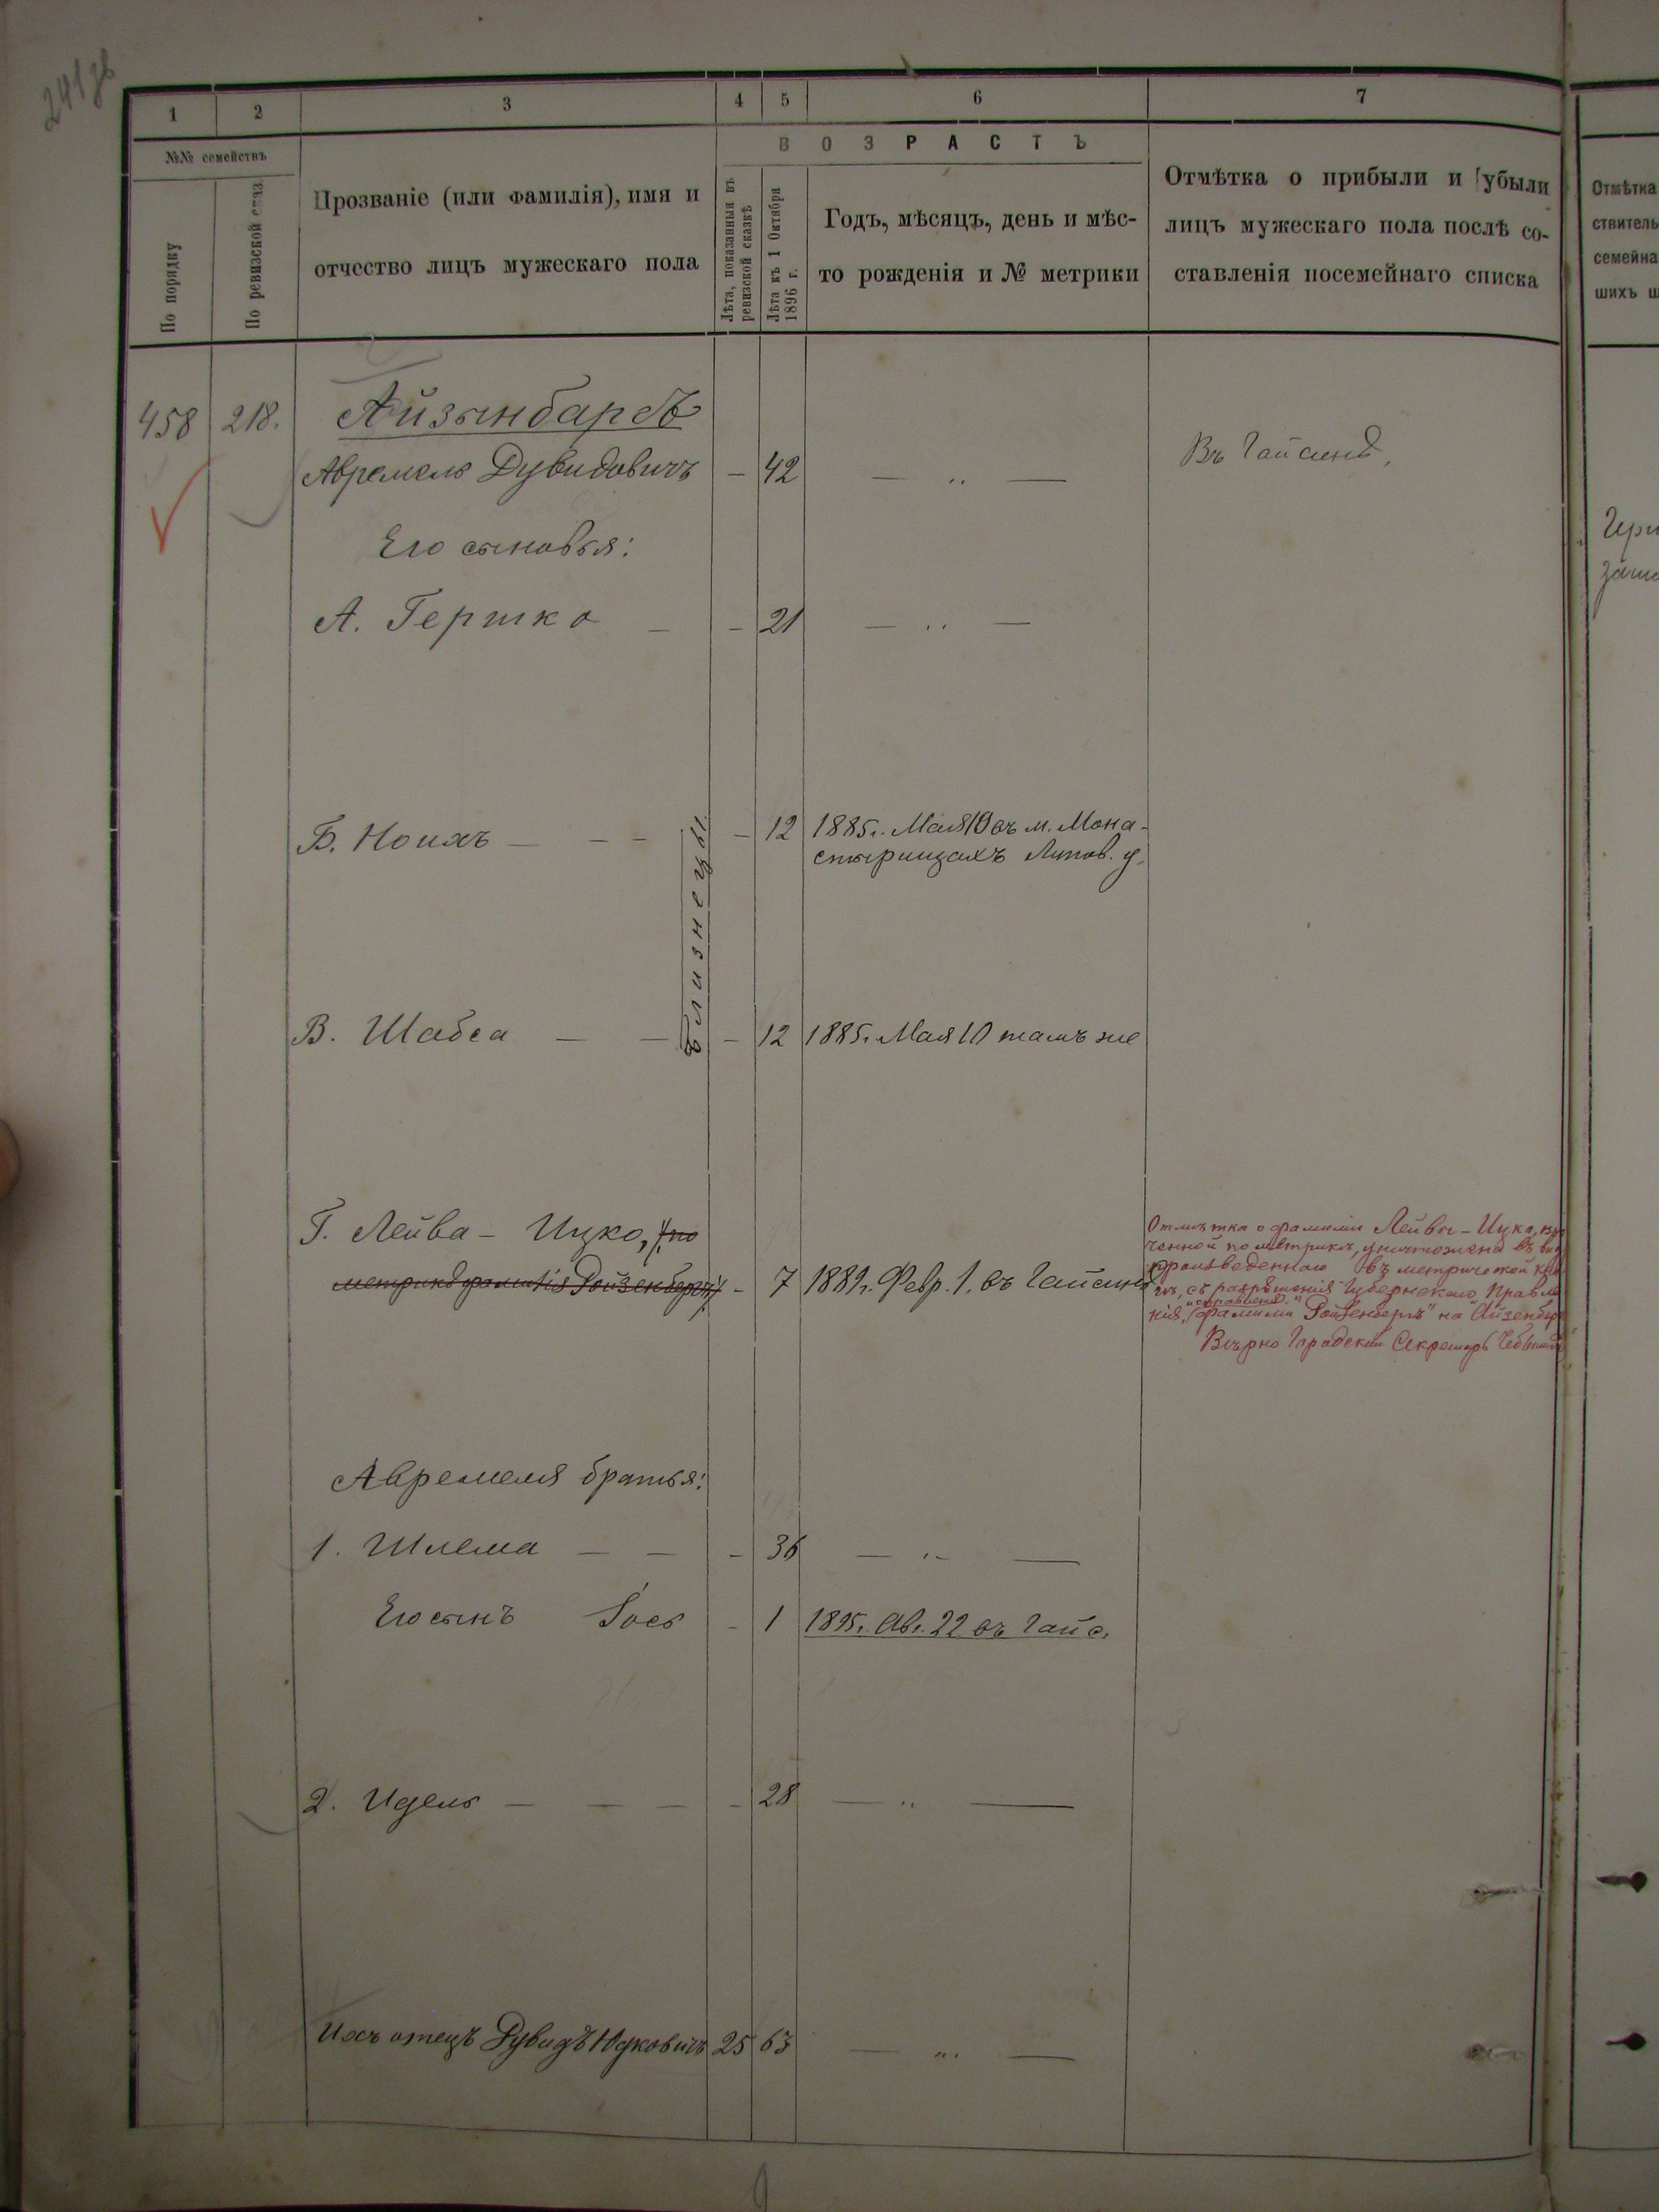 241 об
1 2 3 4 5 6 7
№№ семействъ
По порядку
По ревизской сказ.
Прозваніе (или фамилія), имя и
отчество лицъ мужескаго пола
ВОЗРАСТЪ
Лѣта, показанныя въ
ревизской сказкѣ
Лѣта къ 1 Октября
1896 г.
Годъ, мѣсяцъ, день и мѣс-
то рожденія и № метрики
Отмѣтка о прибыли и убыли
лицъ мужескаго пола послѣ со-
ставленія посемейнаго списка
Отмѣтка
ствитель
семейна
шихъ
458 218. Айзынбаргъ
Авремель Дувидовичъ - 42 — „ — Въ Гайсинѣ,
Его сыновья:
А. Гершко — - 21 — „ —
Б. Ноихъ — — - 12 1885г. Мая 10 въ м. Мона-
стырищахъ Липов. у.
Близнецы
В. Шабса — — - 12 1885г. Мая 10 тамъ же
Г. Лейва - Ицко, (по
метрикѣ фамилія Ройзенбергъ) - 7 1889г. Февр. 1. въ Гайсинѣ
Отмѣтка о фамиліи Лейвы - Ицка,
ченной по метрикѣ, уничтожена въ
произведеннаго въ метрической
съ разрѣшенія Губернскаго Правле
нія, „исправленія" фамиліи „Ройзенбергъ" на „Айзенберг
Вѣрно Городской Секретарь
Авремеля братья:
1. Шлема — — - 36 — „ —
Его сынъ Іось - 1 1895г. Ав. 22 въ Гайс.
2. Идель — — — - 28 — „ —
Ихъ отецъ Дувидъ Юдковичъ 25 63 — „ —